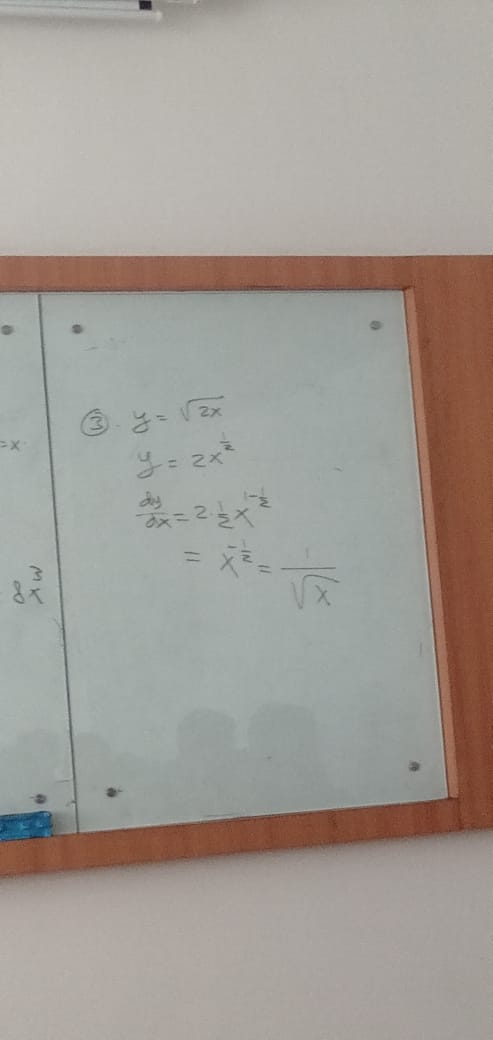 =x
8x³
③. y = √2x
y = 2x^½
dy/dx = 2·½x^1-½
= x^-½ = 1/√x